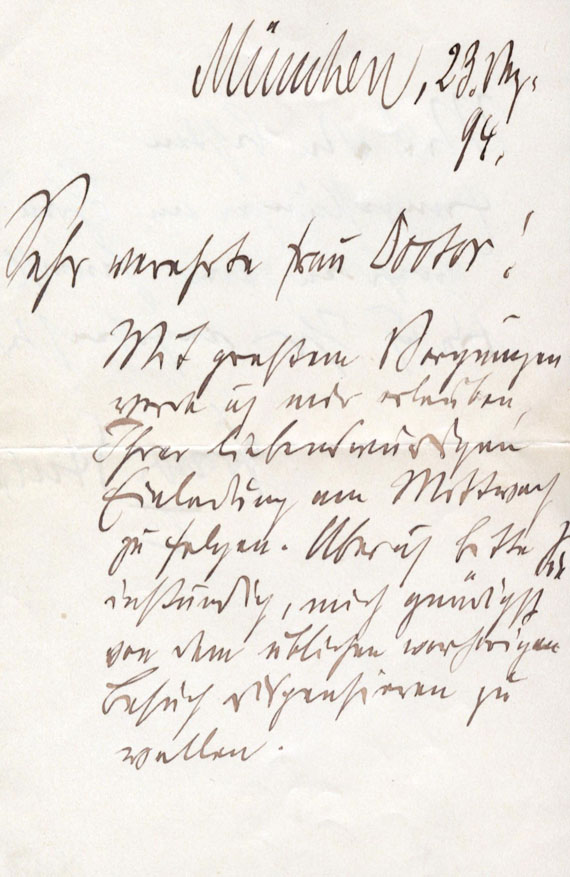 München, 23. Dez.
94.
Sehr verehrte Frau Doctor!
Mit großem Vergnügen
werde ich mir erlauben,
Ihrer liebenswürdigen
Einladung am Mittwoch
zu folgen. Aber ich bitte Sie
inständig, mich gnädigst
von dem üblichen vorherigen
Besuch dispensieren zu
wollen.